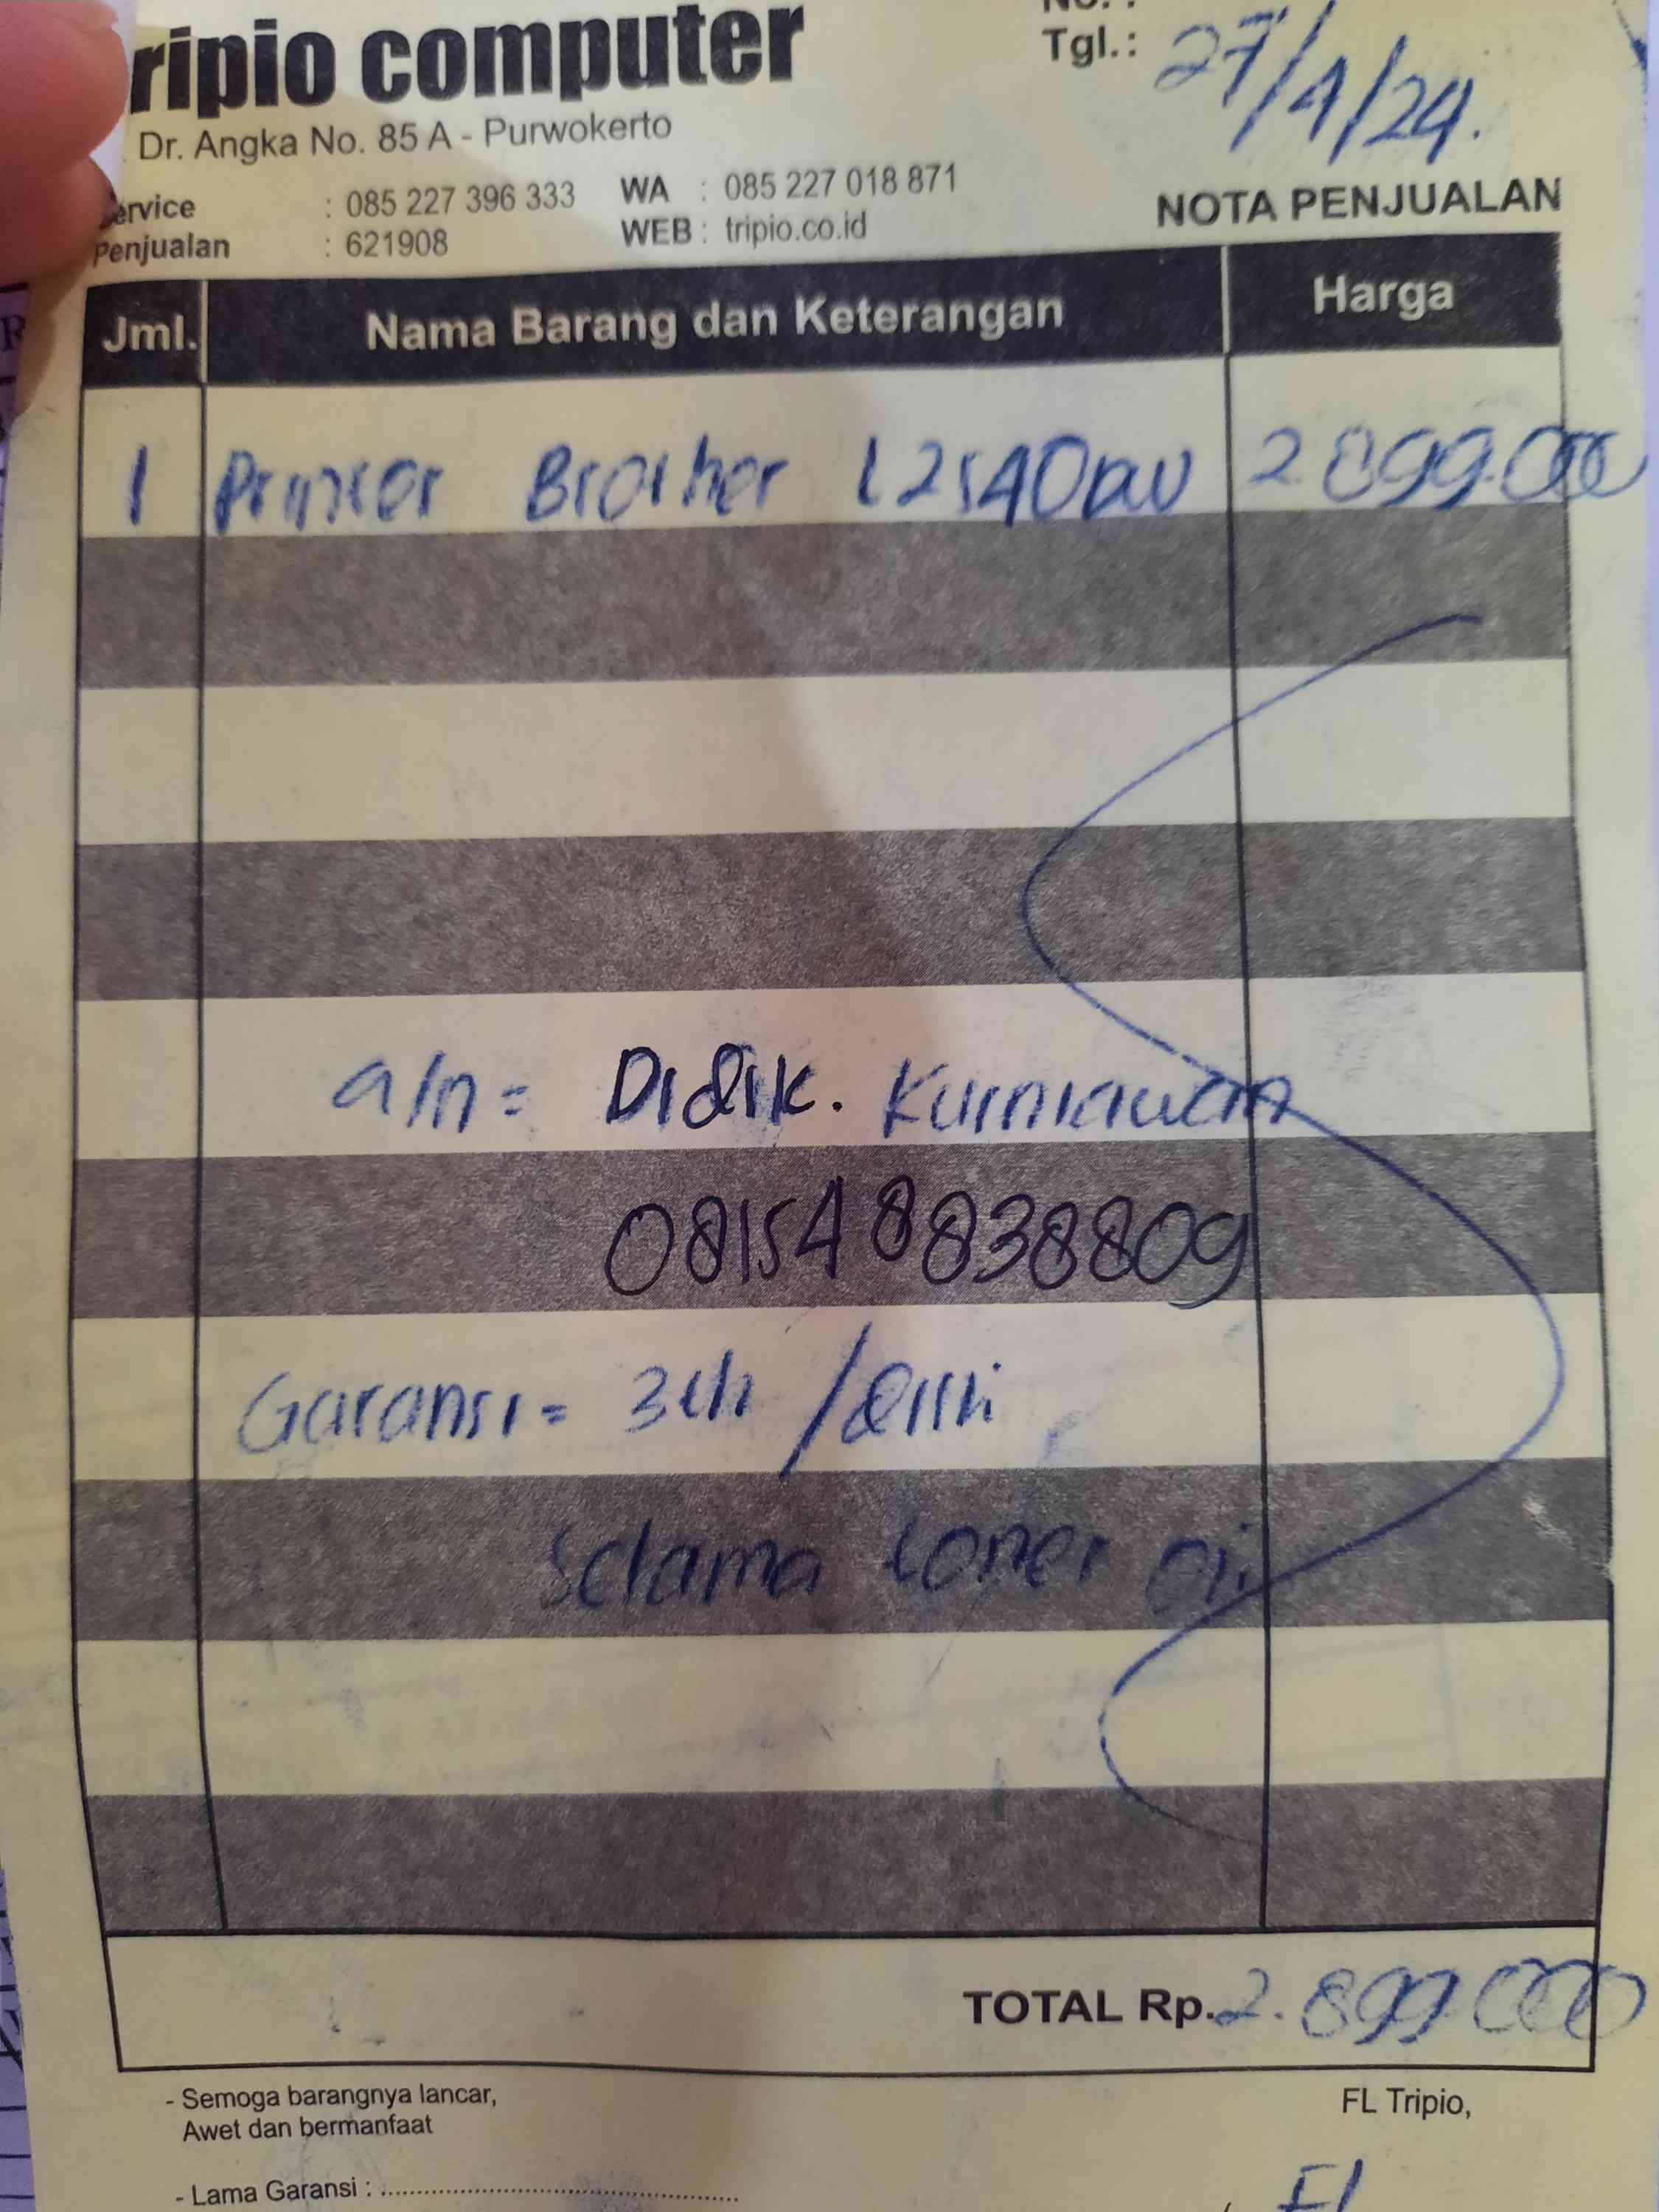 ripio computer
No. :
Tgl.: 27/4/24.
Dr. Angka No. 85 A - Purwokerto
ervice : 085 227 396 333 WA : 085 227 018 871
Penjualan : 621908 WEB : tripio.co.id
NOTA PENJUALAN
Jml. Nama Barang dan Keterangan Harga
1 Printer Brother L2540DW 2.899.000
a/n = Didik. Kurniawan
081548838809
Garansi = 3th /
selama toner ori
TOTAL Rp. 2.899.000
- Semoga barangnya lancar,
Awet dan bermanfaat
FL Tripio,
- Lama Garansi :